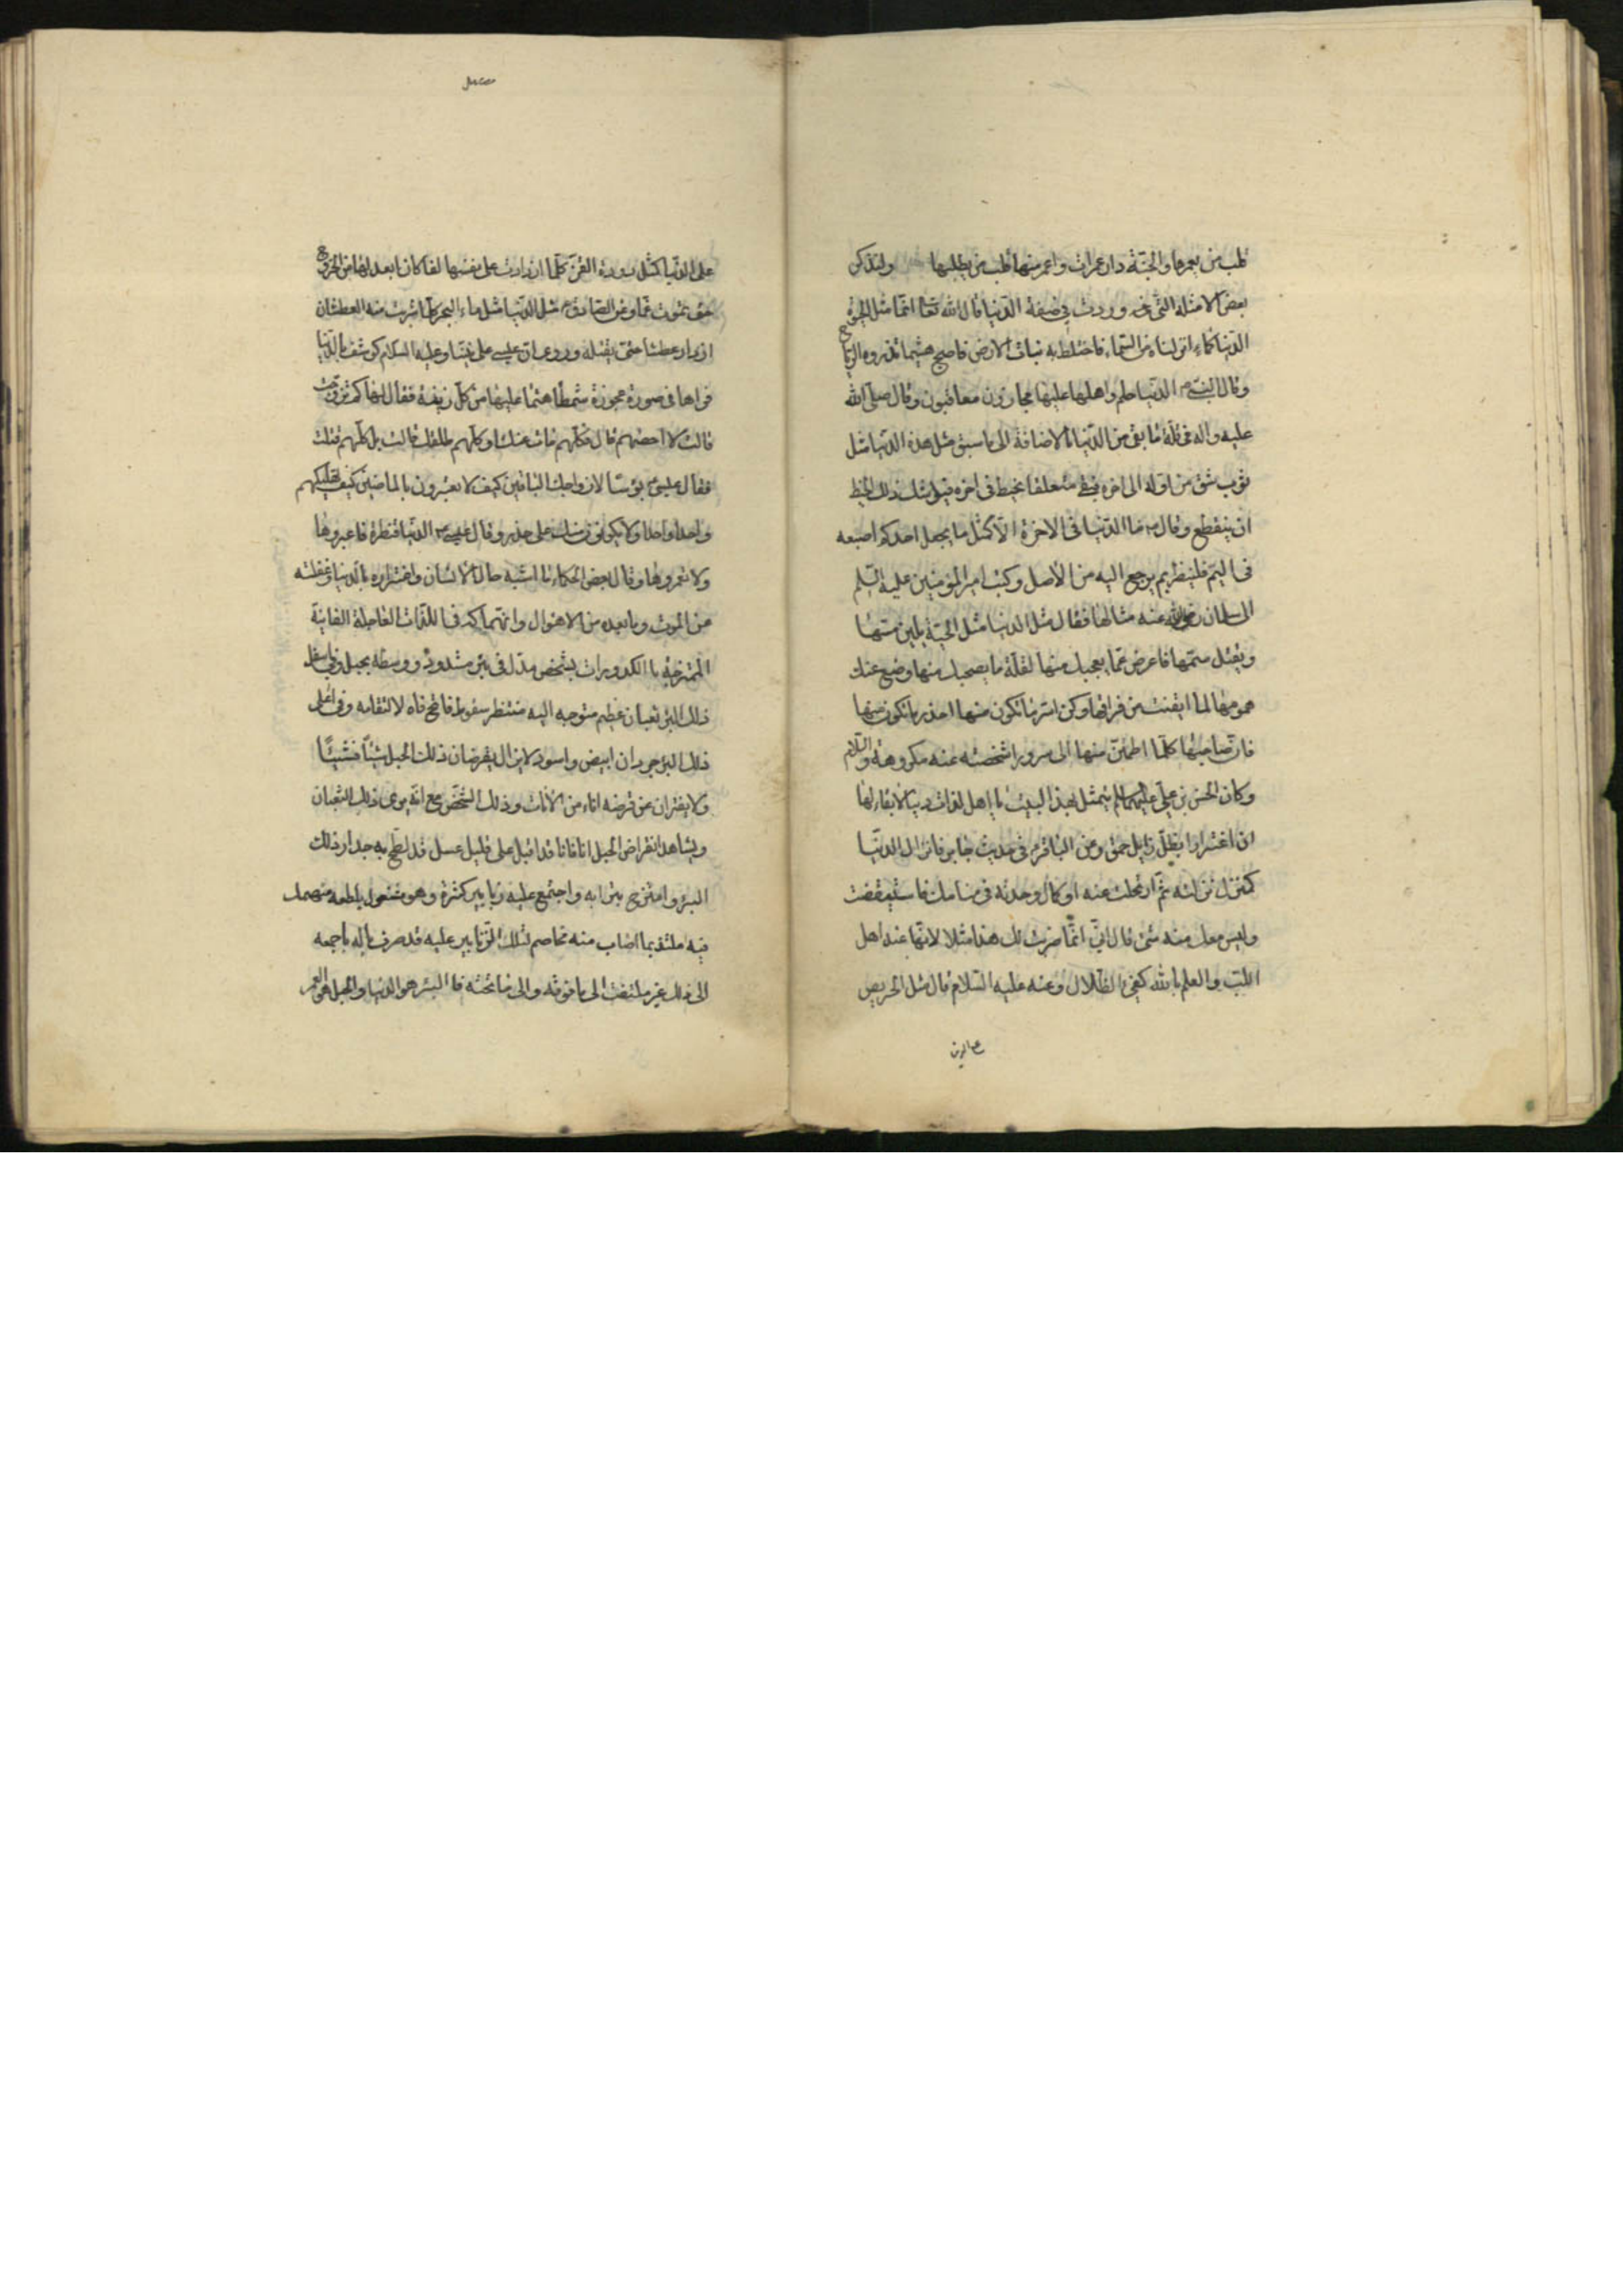 قلب من يعمرها والجنة دار عمران واعمر منها قلب من يطلبها ولنذكر
بعض الامثلة التى وردت فى صفة الدنيا قال الله تعا انما مثل الحيوة
الدنيا كماء انزلناه من السماء فاختلط به نبات الارض فاصبح هشيما تذروه الرياح
وقال النبى ص الدنيا حلم واهلها عليها مجازون معاقبون وقال صلى الله
عليه واله فى قلة ما بقى من الدنيا بالاضافة الى ما سبق مثل هذه الدنيا مثل
ثوب شق من اوله الى اخره فبقى متعلقا بخيط فى اخره فيوشك ذلك الخيط
ان ينقطع وقال ص ما الدنيا فى الاخرة الا كمثل ما يجعل احدكم اصبعه
فى اليم فلينظر بم يرجع اليه من الاصل وكتب امير المؤمنين عليه السلم
الى سلمان رضى الله عنه مثالها فقال مثل الدنيا مثل الحية يلين مسها
ويقتل سمها فاعرض عما يعجبك منها لقلة ما يصحبك منها وضع عنك
همومها لما ايقنت من فراقها وكن اسر ما تكون منها احذر ما تكون منها
فان صاحبها كلما اطمئن منها الى سرور اشخصته عنه مكروهة والسلام
وكان الحسن بن على عليهما السلم يتمثل بهذا البيت يا اهل لذات دنيا لا بقاء لها
ان اغترارا بظل زايل حمق وعن الباقر ع فى حديث جابر فانزل الدنيا
كمنزل نزلته ثم ارتحلت عنه او كمال وجدته فى منامك فاستيقظت
وليس معك منه شئ قال انى انما ضربت لك هذا مثلا لانها عند اهل
اللب والعلم بالله كفئ الظلال وعنه عليه السلام قال مثل الحريص
على الدنيا
على الدنيا كمثل دودة القز كلما ازدادت على نفسها لفا كان ابعد لها من الخروج
حتى تموت غما وعن الصادق ع مثل الدنيا مثل ماء البحر كلما شرب منه العطشان
ازداد عطشا حتى يقتله وروى ان عيسى على نبينا وعليه السلام كوشف بالدنيا
فراها فى صورة عجوزة شمطا هتما عليها من كل زينة فقال لها كم تزوجت
قالت لا احصيهم قال فكلهم مات عنك او كلهم طلقك قالت بل كلهم قتلت
فقال عيسى ع بؤسا لازواجك الباقين كيف لا يعتبرون بالماضين كيف تهلكيهم
واحدا واحدا ولا يكونون منك على حذر وقال عيسى ع الدنيا قنطرة فاعبروها
ولا تعمروها وقال بعض الحكماء ما اشبه حال الانسان واغتراره بالدنيا وغفلته
عن الموت وما بعده من الاهوال وانهماكه فى اللذات العاجلة الفانية
الممتزجة بالكدورات بشخص مدل فى بئر مشدود وسطه بحبل وفى اسفل
ذلك البئر ثعبان عظيم متوجه اليه منتظر سقوطه فاتح فاه لالتقامه وفى اعلى
ذلك البئر جردان ابيض واسود لا يزال يقرضان ذلك الحبل شيئا فشيئا
ولا يفتران عن قرضه اناء من الآنات وذلك الشخص مع انه يرى ذلك الثعبان
ويشاهد انقراض الحبل انا فانا قد اقبل على قليل عسل قد لطخ به جدار ذلك
البئر وامتزج بترابه واجتمع عليه زنابير كثيرة وهو مشغول بلطعه منهمك
فيه ملتذ بما اصاب منه مخاصم لتلك الزنابير عليه قد صرف باله باجمعه
الى ذلك غير ملتفت الى ما فوقه والى ما تحته فالبئر هو الدنيا والحبل هو العمر